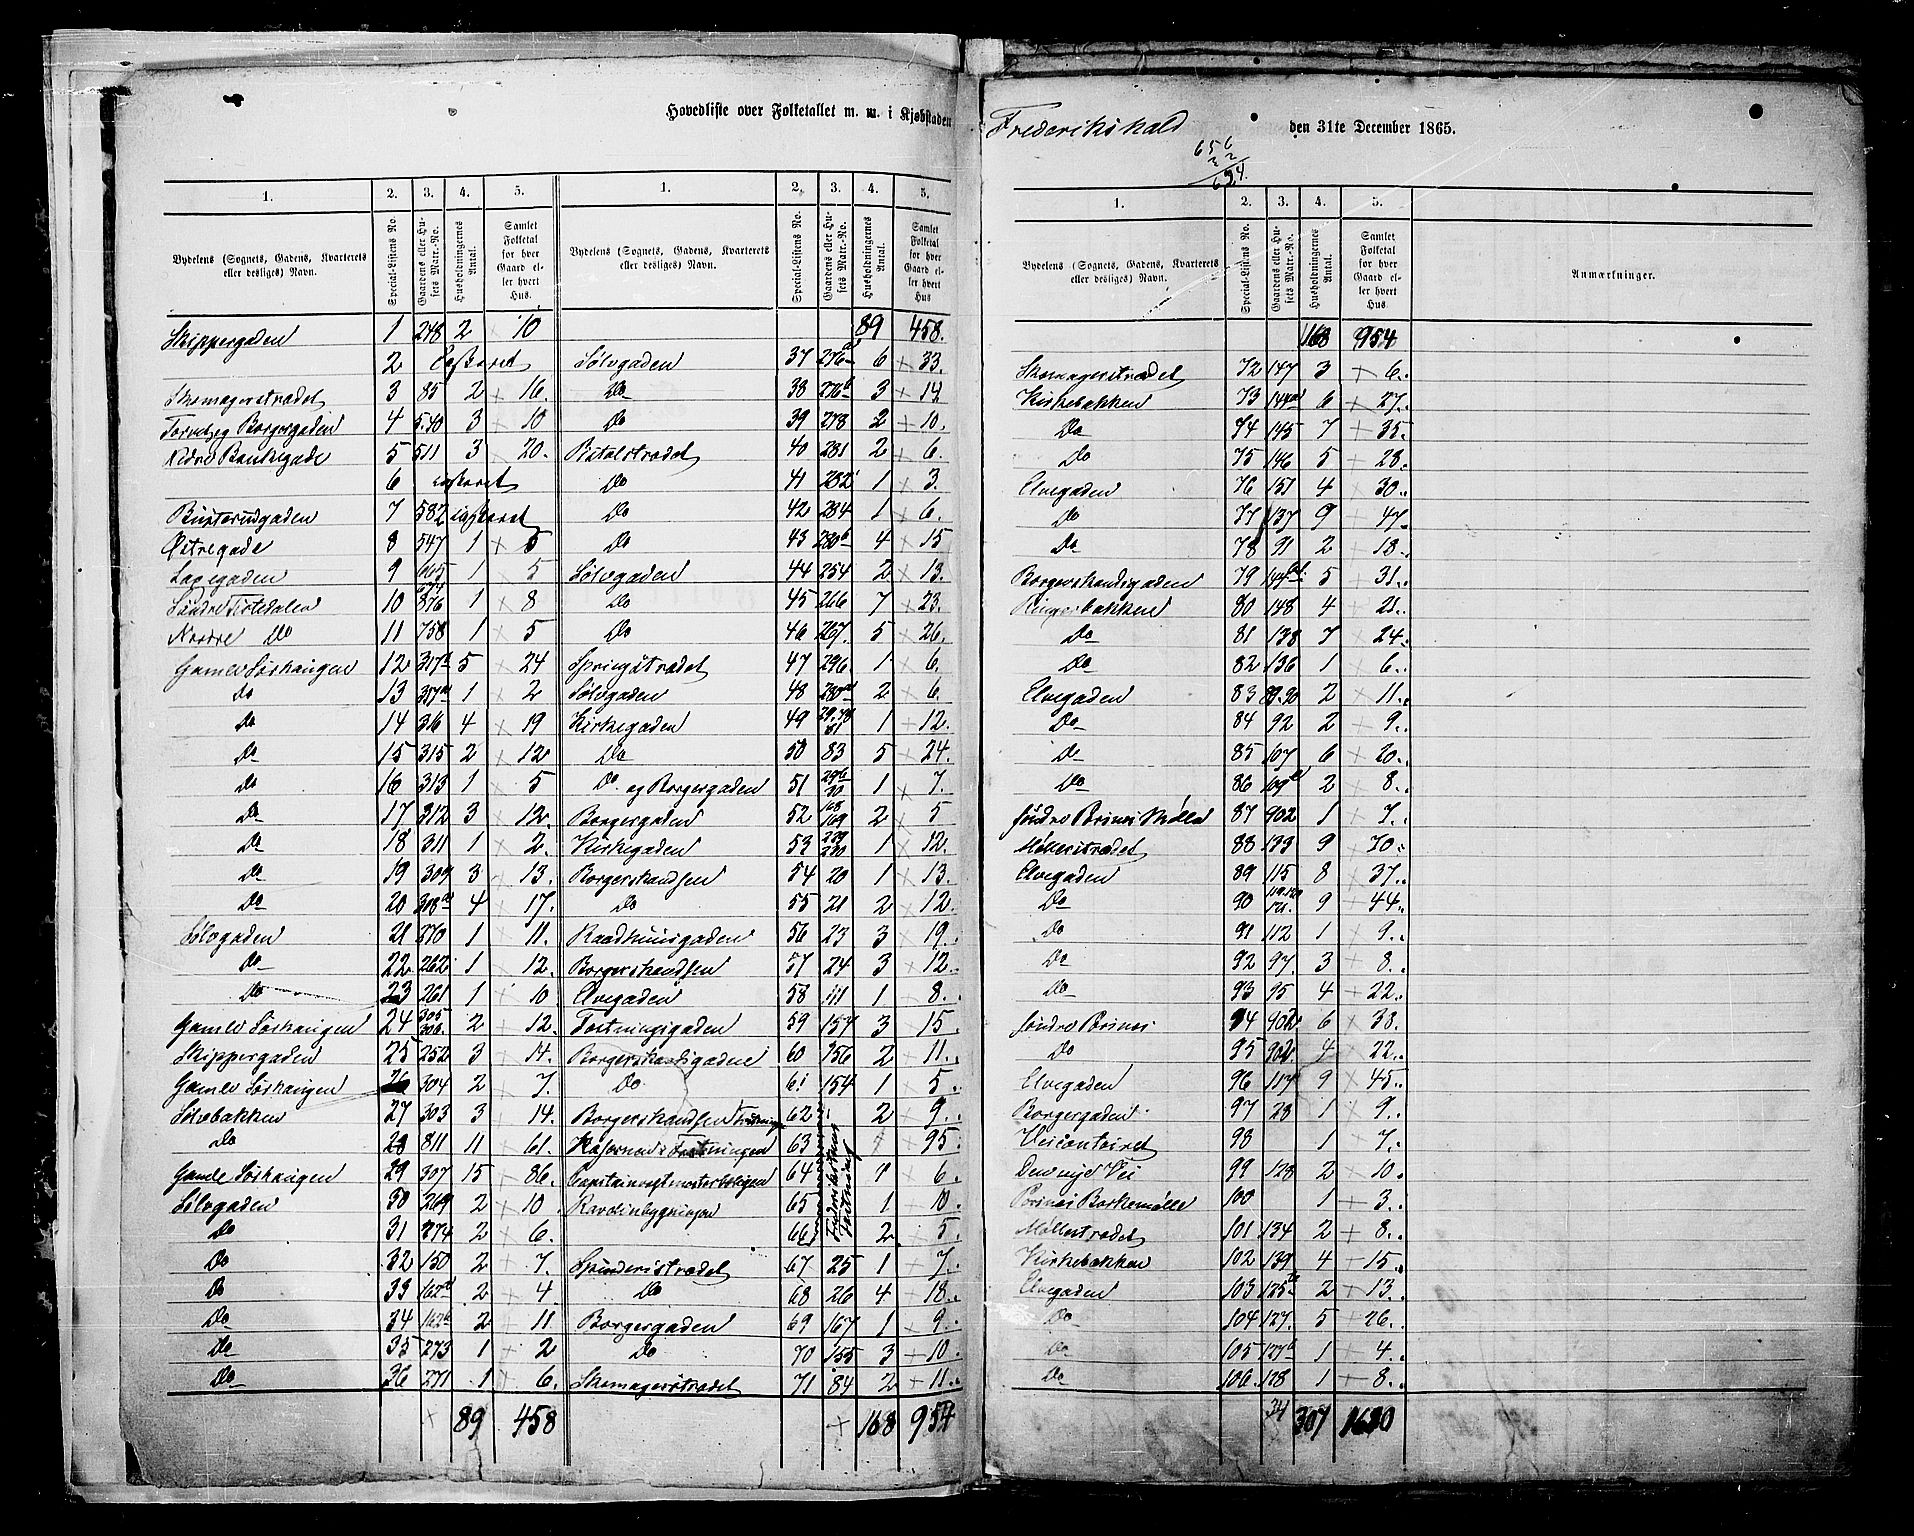 Hovedliste over Folketallet m. m. i Kjøbstaden Frederikshald den 31te December 1865.
656
2 2
624.
1. 2. 3. 4. 5. 1. 2. 3. 4. 5.
Bydelens (Sognets, Gadens, Kvarterets eller desliges) Navn. Special-Listens No. Gaardens eller Husets Matr.-No. Husholdningernes Antal. Samlet Folketal for hver Gaard eller hvert Hus. Bydelens (Sognets, Gadens, Kvarterets eller desliges) Navn. Special-Listens No. Gaardens eller Husets Matr.-No. Husholdningernes Antal. Samlet Folketal for hver Gaard eller hvert Hus
Skippergaden 1 248 2 10
2
Skomagerstrædet 3 85 2 16.
Torvet og Borgergaden 4 5.40 3 10
Nedre Bankegade 5 511 3 20.
6
Busterudgaden 7 582
Østregade 8 547 1 5
9 665 1 5
Søndre Tistedalen 10 876 1 8
Nordre Do 11 758 1 5
Gamle Sørhaugen 12 317 5 24
Do 13 317 1 2
Do 14 316 4 19
Do 15 315 2 12
Do 16 313 1 5
Do 17 312 3 12.
Do 18 311 1 2.
Do 19 309 3 13.
Do 20 308 4 17.
Sølvgaden 21 270 1 11.
Do 22 262 1 12.
Do 23 261 1 10.
Gamle Sørhaugen 24 305 306 2 12.
Skippergaden 25 252 3 14.
Gamle Sørhaugen 26 304 2 7.
27 303 3 14.
Do 28 811 11 61.
Gamle Sørhaugen 29 307 15 86.
Sølvgaden 30 269 2 10
Do 31 274 2 6.
Do 32 150 2 7.
Do 33 162 2 4
Do 34 162b 2 11
Do 35 273 1 2
Do 36 271 1 6.
89 458
89 458.
Sølvgaden 37 276a 6 33.
Do 38 276b 3 14
Do 39 278 2 10.
Pistolstrædet 40 281 2 6.
Do 41 282 1 3.
Do 42 284 1 6.
Do 43 280b 4 15
Sølvgaden 44 254 2 13.
Do 45 266 7 23.
Do 46 267. 5 26.
Springstrædet 47 296. 1 6.
Sølvgaden 48 280 2 6.
Kirkegaden 49 1 12.
Do 50 83 5 24.
Do. og Borgergaden 51 1 7.
Borgergaden 52 168 169 2 5
Kirkegaden 53 1 12.
Borgerskandsen 54 20 1 13.
Do 55 21 2 12.
Raadhuusgaden 56 23 3 19.
Borgerskandsen 57 24 3 12.
Elvegaden 58 111 1 8.
Fæstningsgaden 59 157 3 15.
Borgerskandsgaden 60 156 2 11.
Do 61 154 1 5.
Borgerskandsen 62 2 9.
Kasernen i Fæstningen 63 95.
64 1 6.
Ravelinbygningen 65 1 10.
66 2 5.
Frederikstens Fæstning
Spinderistrædet 67 25 1 7.
Do 68 26 4 18.
Borgergaden 69 167 1 9.
Do 70 155 3 10.
Skomagerstrædet 71 84 2 11.
168 954
1. 2. 3. 4. 5.
Bydelens (Sognets, Gadens, Kvarterets eller desliges) Navn. Special-Listens No. Gaardens eller Husets Matr.-No. Husholdningernes Antal. Samlet Folketal for hver Gaard eller hvert Hus. Anmærkninger.
168 954
Skomagerstrædet 72 147 3 6.
Kirkebakken 73 144 6 27.
Do 74 145 7 35.
Do 75 146 5 28.
Elvegaden 76 151 4 30.
Do 77 137 9 47.
Do 78 91 2 18.
Borgerskandsgaden 79 144 5 31.
Ringerbakken 80 148 4 21.
Do 81 138 7 24.
Do 82 136 1 6.
Elvegaden 83 89.90 2 11.
Do 84 92 2 9.
Do 85 107 6 20.
Do 86 109 2 8.
Søndre Porsnes Mølle 87 902 1 7.
Møllerstrædet 88 133 9 70.
Elvegaden 89 115 8 37.
Do 90 9 44.
Do 91 112 1 9.
Do 92 97. 3 8.
Do 93 95 4 22.
Søndre Porsnes 94 902 6 38.
Do 95 902. 4 22.
Elvegaden 96 117 9 45.
Borgergaden 97 28 1 9.
98 1 7.
Den nye Vei 99 128 2 10.
Porsnes Barkemølle 100 1 3.
Møllestrædet 101 134 2 8.
Kirkebakken 102 139 4 15.
Elvegaden 103 125 2 13.
Do 104 127. 5 26.
Do 105 127b 1 4.
Do 106. 128 1 8.
34 307 1680